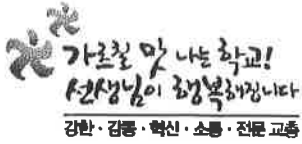 가르칠 맛 나는 학교!
선생님이 행복해집니다
강한 · 감동 · 혁신 · 소통 · 전문 교총